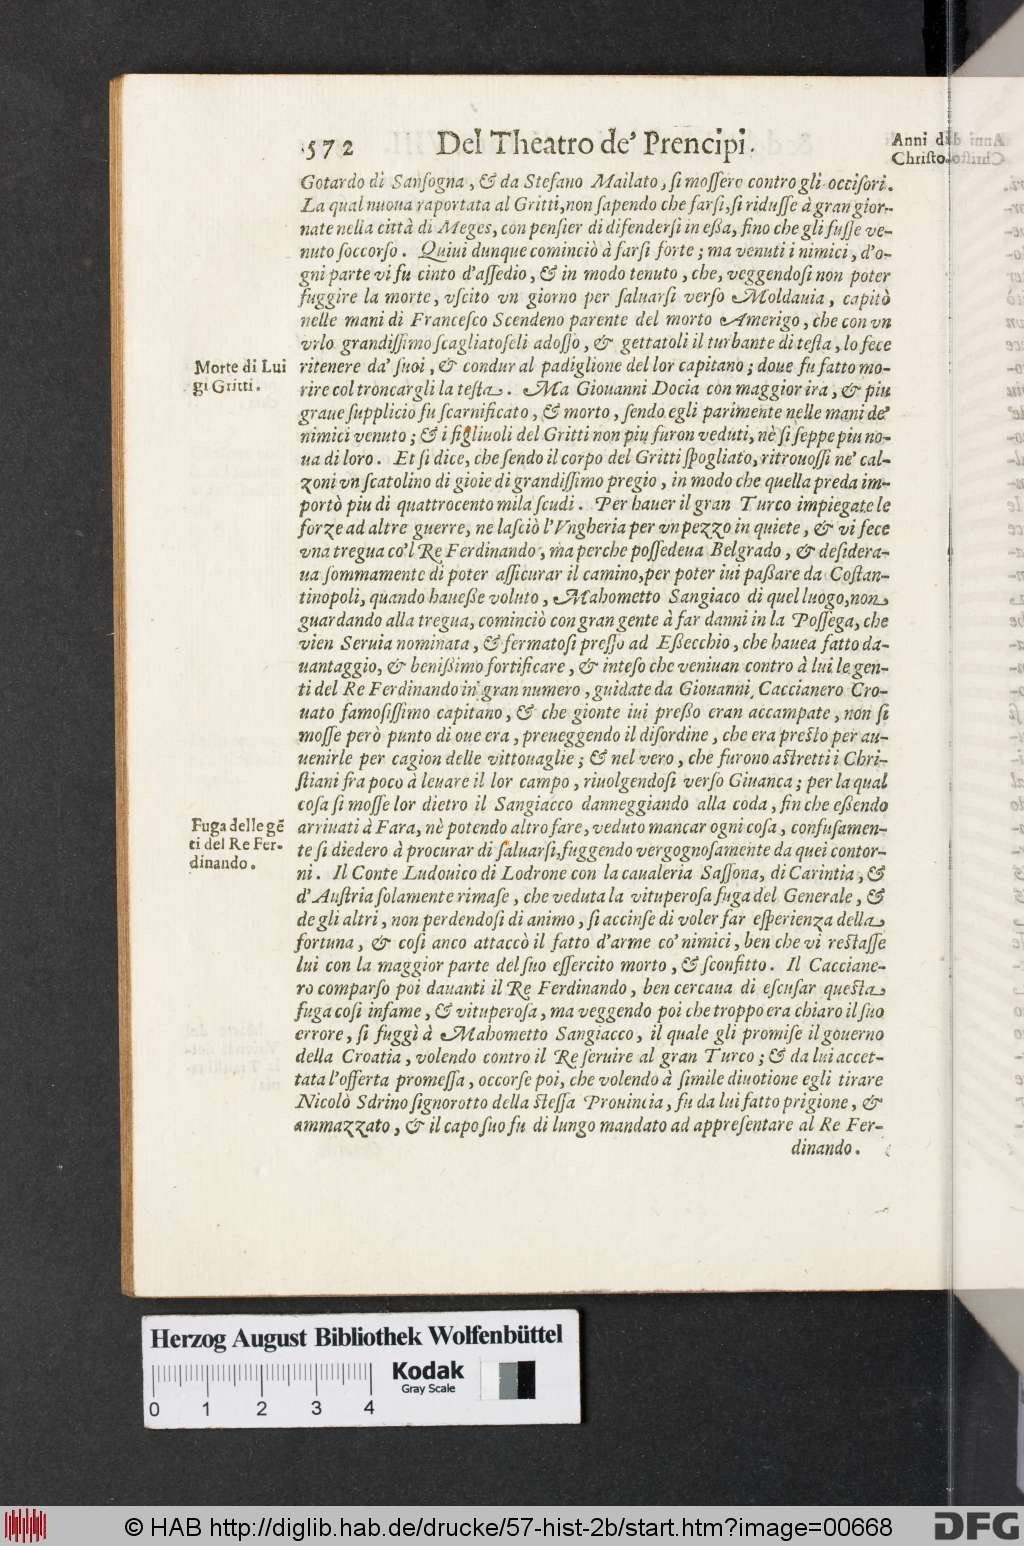 572 Del Theatro de' Prencipi.
Anni di
Christo.
Gotardo di Sansogna, & da Stefano Mailato, si mossero contro gli occisori.
La qual nuoua raportata al Gritti, non sapendo che farsi, si ridusse à gran gior-
nate nella città di Meges, con pensier di difendersi in essa, fino che gli fusse ve-
nuto soccorso. Quiui dunque cominciò à farsi forte; ma venuti i nimici, d'o-
gni parte vi fu cinto d'assedio, & in modo tenuto, che, veggendosi non poter
fuggire la morte, vscito vn giorno per saluarsi verso Moldauia, capitò
nelle mani di Francesco Scendeno parente del morto Amerigo, che con vn
vrlo grandissimo scagliatoseli adosso, & gettatoli il turbante di testa, lo fece
Morte di Lui
gi Gritti.
ritenere da' suoi, & condur al padiglione del lor capitano; doue fu fatto mo-
rire col troncargli la testa. Ma Giouanni Docia con maggior ira, & piu
graue supplicio fu scarnificato, & morto, sendo egli parimente nelle mani de'
nimici venuto; & i figliuoli del Gritti non piu furon veduti, nè si seppe piu no-
ua di loro. Et si dice, che sendo il corpo del Gritti spogliato, ritrouossi ne' cal-
zoni vn scatolino di gioie di grandissimo pregio, in modo che quella preda im-
portò piu di quattrocento mila scudi. Per hauer il gran Turco impiegate le
forze ad altre guerre, ne lasciò l'Vngheria per vn pezzo in quiete, & vi fece
vna tregua co'l Re Ferdinando, ma perche possedeua Belgrado, & desidera-
ua sommamente di poter assicurar il camino, per poter iui passare da Costan-
tinopoli, quando hauesse voluto, Mahometto Sangiaco di quel luogo, non
guardando alla tregua, cominciò con gran gente à far danni in la Possega, che
vien Seruia nominata, & fermatosi presso ad Essecchio, che hauea fatto da-
uantaggio, & benissimo fortificare, & inteso che veniuan contro à lui le gen-
ti del Re Ferdinando in gran numero, guidate da Giouanni Caccianero Cro-
uato famosissimo capitano, & che gionte iui presso eran accampate, non si
mosse però punto di oue era, preueggendo il disordine, che era presto per au-
uenirle per cagion delle vittouaglie; & nel vero, che furono astretti i Chri-
stiani fra poco à leuare il lor campo, riuolgendosi verso Giuanca; per la qual
cosa si mosse lor dietro il Sangiacco danneggiando alla coda, fin che essendo
Fuga delle gē
ti del Re Fer-
dinando.
arriuati à Fara, nè potendo altro fare, veduto mancar ogni cosa, confusamen-
te si diedero à procurar di saluarsi, fuggendo vergognosamente da quei contor-
ni. Il Conte Ludouico di Lodrone con la caualeria Sassona, di Carintia, &
d'Austria solamente rimase, che veduta la vituperosa fuga del Generale, &
de gli altri, non perdendosi di animo, si accinse di voler far esperienza della
fortuna, & cosi anco attaccò il fatto d'arme co' nimici, ben che vi restasse
lui con la maggior parte del suo essercito morto, & sconfitto. Il Cacciane-
ro comparso poi dauanti il Re Ferdinando, ben cercaua di escusar questa
fuga cosi infame, & vituperosa, ma veggendo poi che troppo era chiaro il suo
errore, si fuggì à Mahometto Sangiacco, il quale gli promise il gouerno
della Croatia, volendo contro il Re seruire al gran Turco; & da lui accet-
tata l'offerta promessa, occorse poi, che volendo à simile diuotione egli tirare
Nicolò Sdrino signorotto della stessa Prouincia, fu da lui fatto prigione, &
ammazzato, & il capo suo fu di lungo mandato ad appresentare al Re Fer-
dinando.
Herzog August Bibliothek Wolfenbüttel
Kodak
Gray Scale
0 1 2 3 4
© HAB http://diglib.hab.de/drucke/57-hist-2b/start.htm?image=00668
DFG